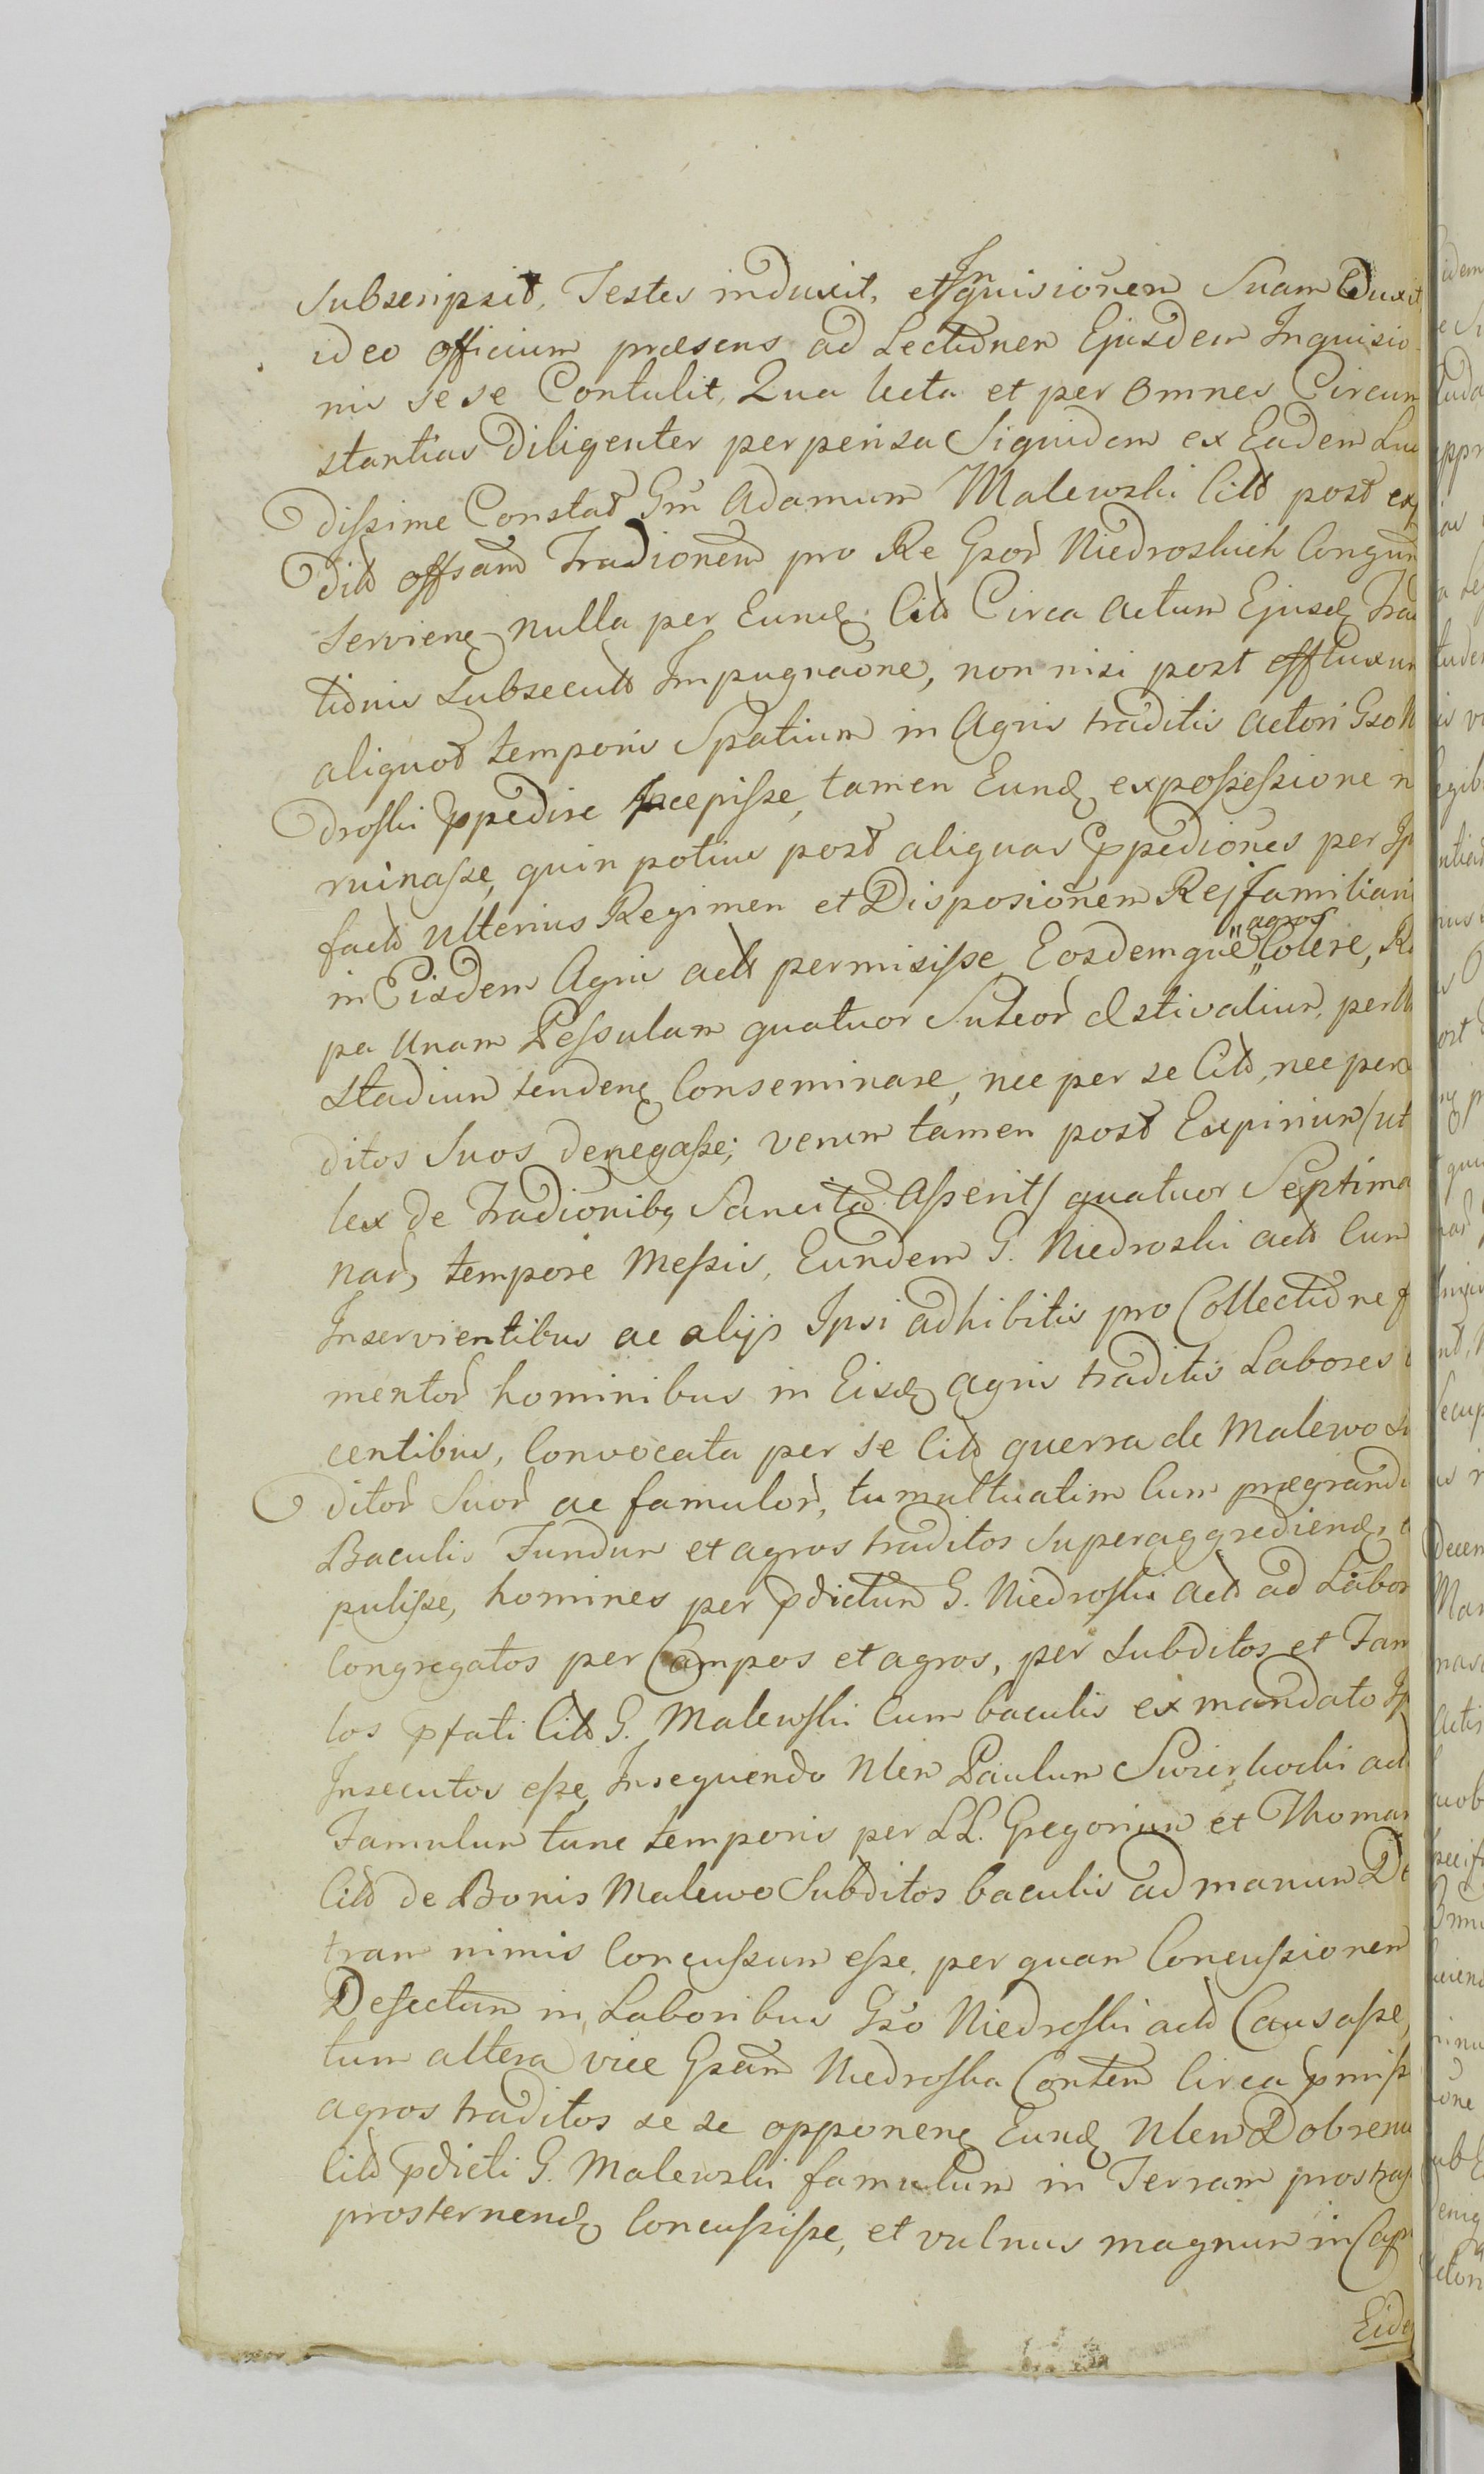 Subscripsit, Testes induxit, et Inquisionem Suam Eduxit
ideo officium præsens ad Lectionem Ejusdem Inquisio
nis sese Contulit, Qua lecta et per Omnes Circum
stantias Diligenter perpensa Siquidem ex Eadem Luc
dissime Constat Gm Adamum Malewski Citt post ex
ditt offsam Tradionem pro Re Gsor Niedroskich Congrum
Serviens nulla per Eund Citt Circa actum Ejusd Trad
tionis Subsecuta Impugnaone, non nisi post effluxum
aliquot temporis Spatium in Agris traditis actori Gso N
droski Impedire Incepisse, tamen Eund ex possessione n
ruinasse, quin potius post aliquas Impediones per Ip
fact Ulterius Regimen et Disposionem Rei familiari
in Eisdem Agris act permisisse Eosdemque agros Colere, R
pa Unam Pessulam quatuor Sulcor Æstivalium, per
Stadium tenden Conseminare, nec per se Citt, nec per
ditos Suos denegasse; verum tamen post Expirium /ut
lex de Tradionibg Sancita Asserit/ quatuor Septima
nar, tempore Messis, Eundem G. Niedroski act Cum
Inservientibus ac alijs Ipsi adhibitis pro Collectione f
mentor hominibus in Eisd agris traditis Labores
centibus, Convocata per se Citt guerra de Malewo S
ditor Suor ac famulor, tumultuatim Cum prægrandi
Baculis Fundum et agros traditos Superaggrediend,
pulisse, homines per pdictum G. Niedroski act ad Labor
Congregatos per Campos et agros, per Subditos et Fam
los pfati Citt G. Malewski Cum baculis ex mandato Ip
Insecutos esse, Insequendo Nlem Paulum act
Famulum tunc temporis per LL. Gregorium et Thomam
Citt de Bonis Malewo Subditos baculis ad manum De
tram nimis Concussum esse, per quam Concussionem
Defectum in Laboribus Gso Niedroski act Causasse,
tum altera vice Gsam Niedroska Conten Circa pmiss
agros traditos se se opponen Eund Nlem Dobrenu
Citt pdicti G. Malewski famulum in Terram prostras
prosternend Concussisse, et vulnus magnum in Cap
Eide